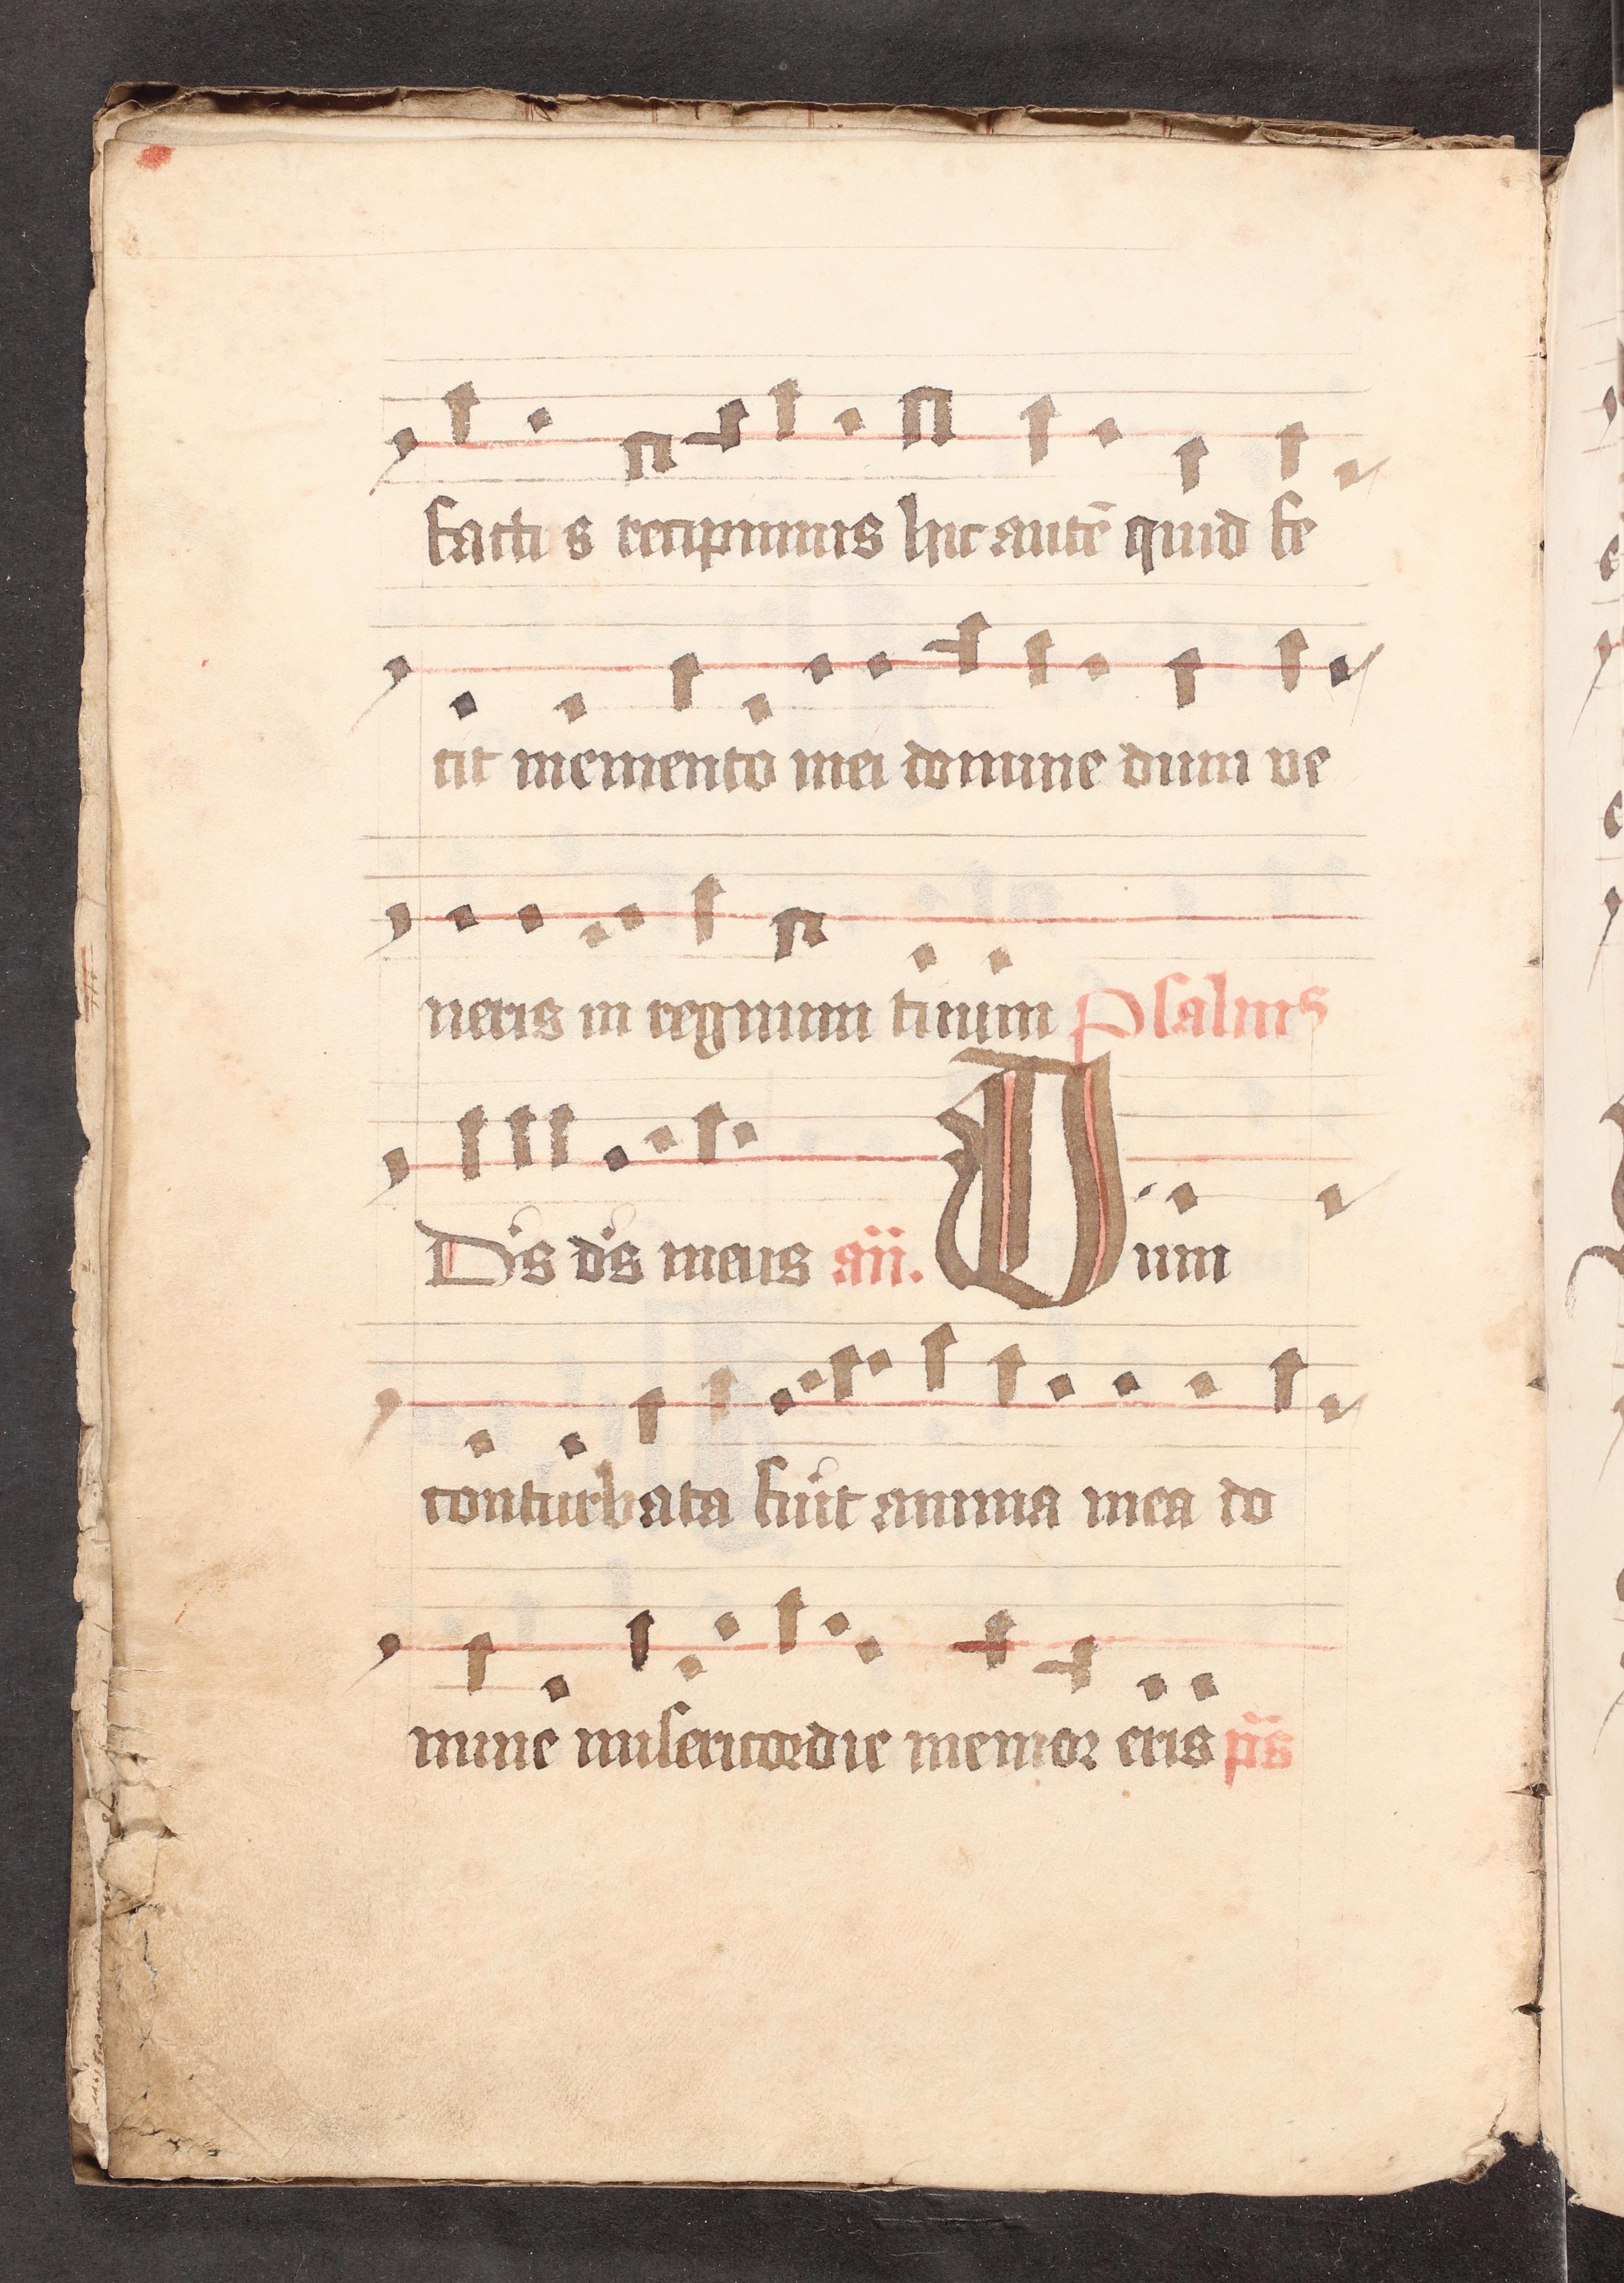 factis recipimus hic autē quid fe
cit memento mei domine dum ve
neris in regnum tuum Psalmus
Dn̄s ds̄ meus an̄.
Dum
conturbata fuit̾ anima mea do
mine misericordie memor eris ps̄